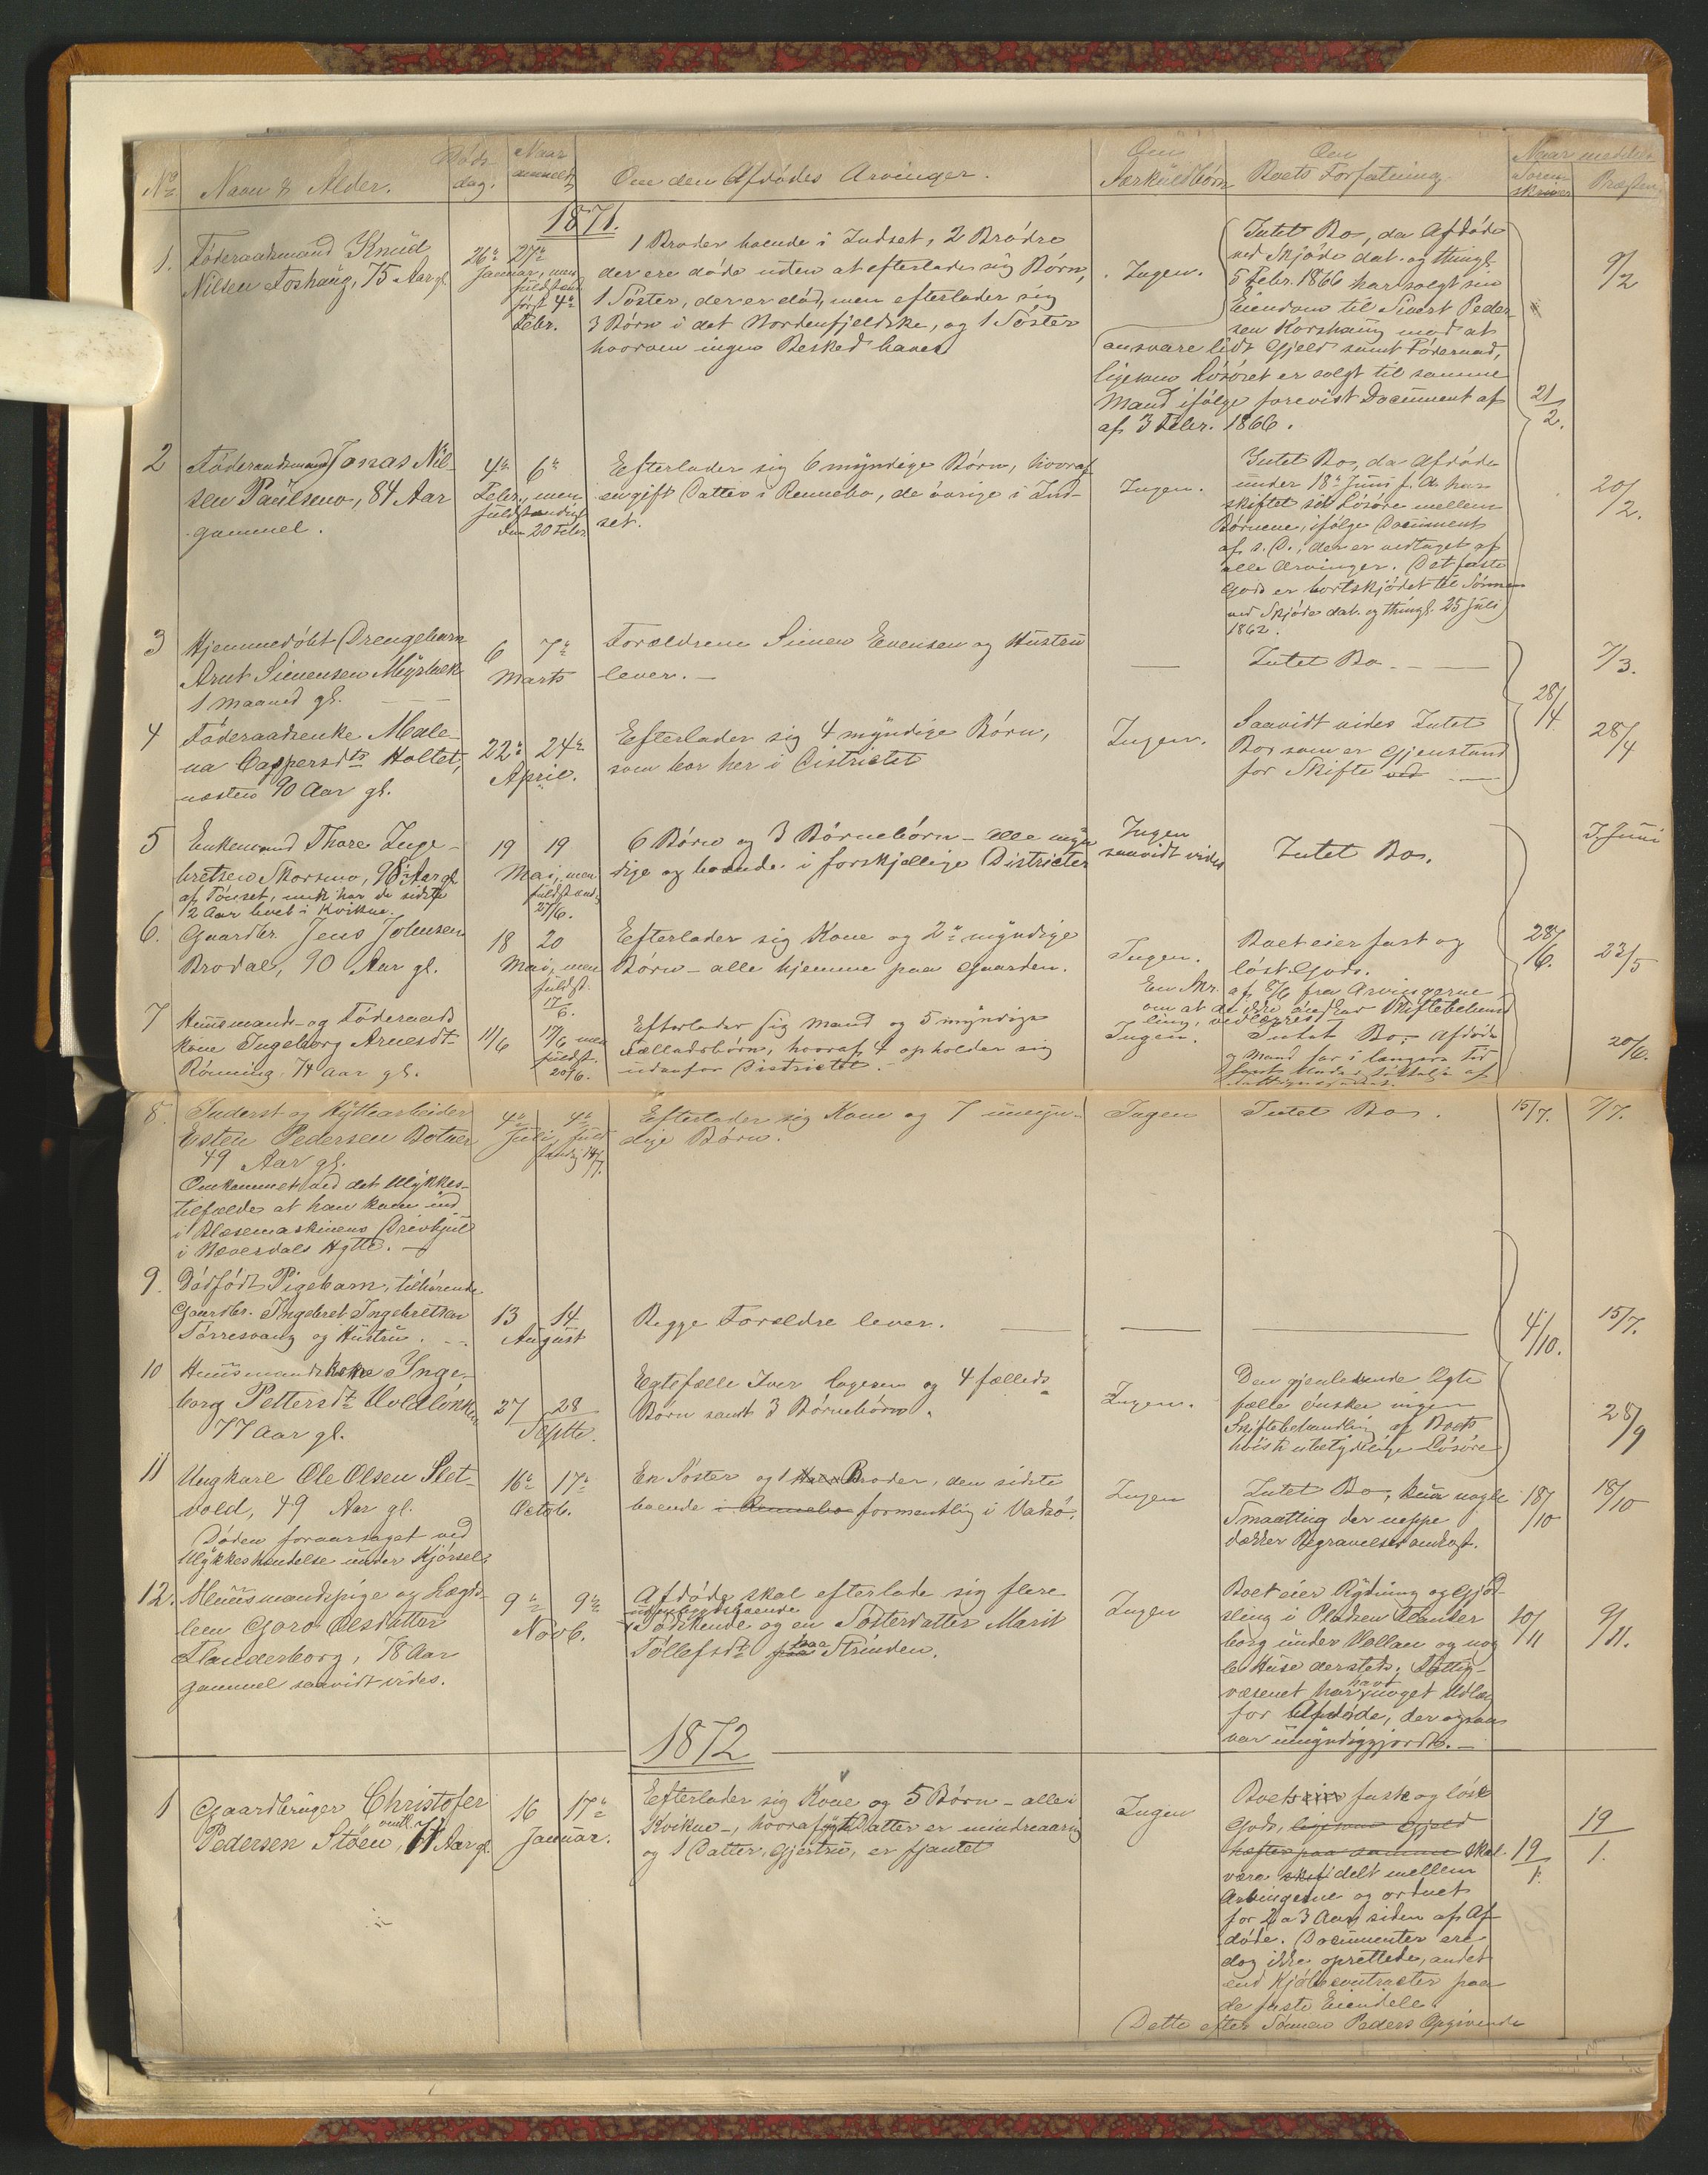 No
Navn & Alder.
Døds-
dag.
Naar
anmeldt
Om den Afdødes Arvinger.
Om
Særkuldbørn
Om
Boets Forfatning
Naar meddelt
Soren-
skriver
Præsten
1871.
1.
Føderaadsmand Knud
Nilsen Foshaug, 75 Aar gl.
26de 27de
Januar, men
fuldstænd
først 4de
Febr.
1 Broder boende i Indset, 2 Brødre
der ere døde uden at efterlade sig Børn,
1 Søster, der er død, men efterlader sig
3 Børn i det Nordenfjeldske, og 1 Søster
hvorom ingen Besked haves
Ingen.
Intet Bo, da Afdøde
ved Skjøde dat. og thingl.
5 Febr. 1866 har solgt sin
Eiendom til Sivert Peder-
sen Horshaug mod at
ansvare lidt Gjeld samt Føderaad,
ligesom Løsøret er solgt til samme
Mand ifølge forevist Document af
af 3 Febr. 1866.
21/2.
9/2
2
Føderaadsmand Jonas Nil-
sen Paulsmo, 84 Aar
gammel.
4de 6te
Febr., men
fuldstændigt
den 20 Febr.
Efterlader sig 6 myndige Børn, hvoraf
en gift Datter i Rennebo, de øvrige i Ind-
set.
Ingen.
Intet Bo, da Afdøde
under 18de Juni f. A. har
skiftet sit Løsøre mellem
Børnene, ifølge Document
af s. D., der er vedtaget af
alle Arvinger. Det faste
Gods er bortskjødet til Sønnen
ved Skjøde dat. og thingl. 25 Juli
1862.
20/2.
3
Hjemmedøbt Drengebarn
Arnt Simensen Myrbek
1 Maaned gl.
6 7de
Marts
Forældrene Simen Evensen og Hustru
lever. —
—
Intet Bo. —
28/4
7/3.
4
Føderaadsenke Male-
na Caspersdtr Holtet,
næsten 90 Aar gl.
22de 24de
April.
Efterlader sig 4 myndige Børn,
som bor her i Districtet
Ingen.
Saavidt vides Intet
Bo som er Gjenstand
for Skifte ved —
28/4
5
Enkemand Thore Inge-
bretsen Skorsmo, 98 Aar gl.
af Tønset, men har de sidste
12 Aar levet i Kvikne.
19 19
Mai, men
fuldstænd.
27/6.
6 Børn og 3 Børnebørn – alle myn
dige og boende i forskjellige Districter
Ingen
saavidt vides
Intet Bo.
28/6.
3 Juni
6.
Gaardbr. Jens Johnsen
Brodal, 90 Aar gl.
18 20
Mai, men
fuldst.
17/6.
Efterlader sig Kone og 2de myndige
Børn – alle hjemme paa Gaarden.
Ingen.
Boet eier fast og
løst Gods.
En Skr. af 8/6 fra Arvingerne
om at de ikke ønsker Skiftebehand
ling, vedlægges.
23/5
7
Huusmands- og Føderaads
kone Ingeborg Arnesdtr
Rønning, 74 Aar gl.
11/6
17/6 men
fuldst.
20/6.
Efterlader sig Mand og 5 myndige
Fælledsbørn, hvoraf 4 opholder sig
udenfor Districtet. —
Ingen.
Intet Bo; Afdøde
og Mand har i længere Tid
20/6.
8.
Inderst og Hyttearbeider
Esten Pedersen Botner
49 Aar gl.
Omkommet ved det Ulykkes-
tilfælde at han kom ind
i Blæsemaskinens Drivhjul
i Næverdals Hytte. —
4de 4de
Juli, fuld
stændig 14/7.
Efterlader sig Kone og 7 umyn-
dige Børn.
Ingen
Intet Bo.
15/7.
7/7.
9.
Dødfødt Pigebarn, tilhørende
Gaardbr. Ingebret Ingebretsen
Tørresvang og Hustru. —
13 14
August
Begge Forældre lever.
—
—
4/10.
15/7.
10
Huusmandskone Inge-
borg Pettersdtr Voldløkken
77 Aar gl.
27 28
Septbr.
Egtefælle Iver Eggesen og 4 fælleds
Børn samt 3 Børnebørn.
Ingen.
Den gjenlevende Ægte
fælle ønsker ingen
Skiftebehandling af Boets
høist ubetydelige Løsøre
28/9
11
Ungkarl Ole Olsen Slet-
vold, 49 Aar gl.
Døden foraarsaget ved
Ulykkeshændelse under Kjørsel
16de 17de
Octob.
En Søster og 1 Broder, den sidste
boende i Rennebo formentlig i Vadsø.
Ingen
Intet Bo, kun nogle
Smaatting der neppe
dækker Begravelses omkost.
18/10
18/10
12.
Huusmandspige og Lægds-
lem Goro Olesdatter
Flanderborg, 78 Aar
gammel saavidt vides.
9de 9de
Novb.
Afdøde skal efterlade sig flere
udenbygdsboende
Sødskende og en Søsterdatter Marit
Tollefsdtr paa fraa Strinden.
Ingen
Boet eier Rydning og Gjød-
sling i Pladsen Flander
borg under Vollan og nog
le Huse dersteds; Fattig-
væsenet har havt noget Udlæg
for Afdøde, der ogsaa
var umyndiggjordt. —
10/11
9/11.
1872
1
Gaardbruger Christofer
Pedersen Støen, omtl. 71 Aar gl.
16 17de
Januar.
Efterlader sig Kone og 5 Børn – alle i
Kvikne –, hvoraf yngste Datter er mindreaarig
og 1 Datter, Gjertru, er fjantet
Ingen
Boets eier fast og løst
Gods, ligesom Gjeld
hæfter paa samme skal
være skif delt mellem
Arvingerne og ordnet
for 2 a 3 Aar siden af Af-
døde. Documenter ere
dog ikke oprettede, andet
end Kjøbecontracter paa
de faste Eiendele.
Dette efter Sønnen Peders Opgivende
19/1.
19/1.